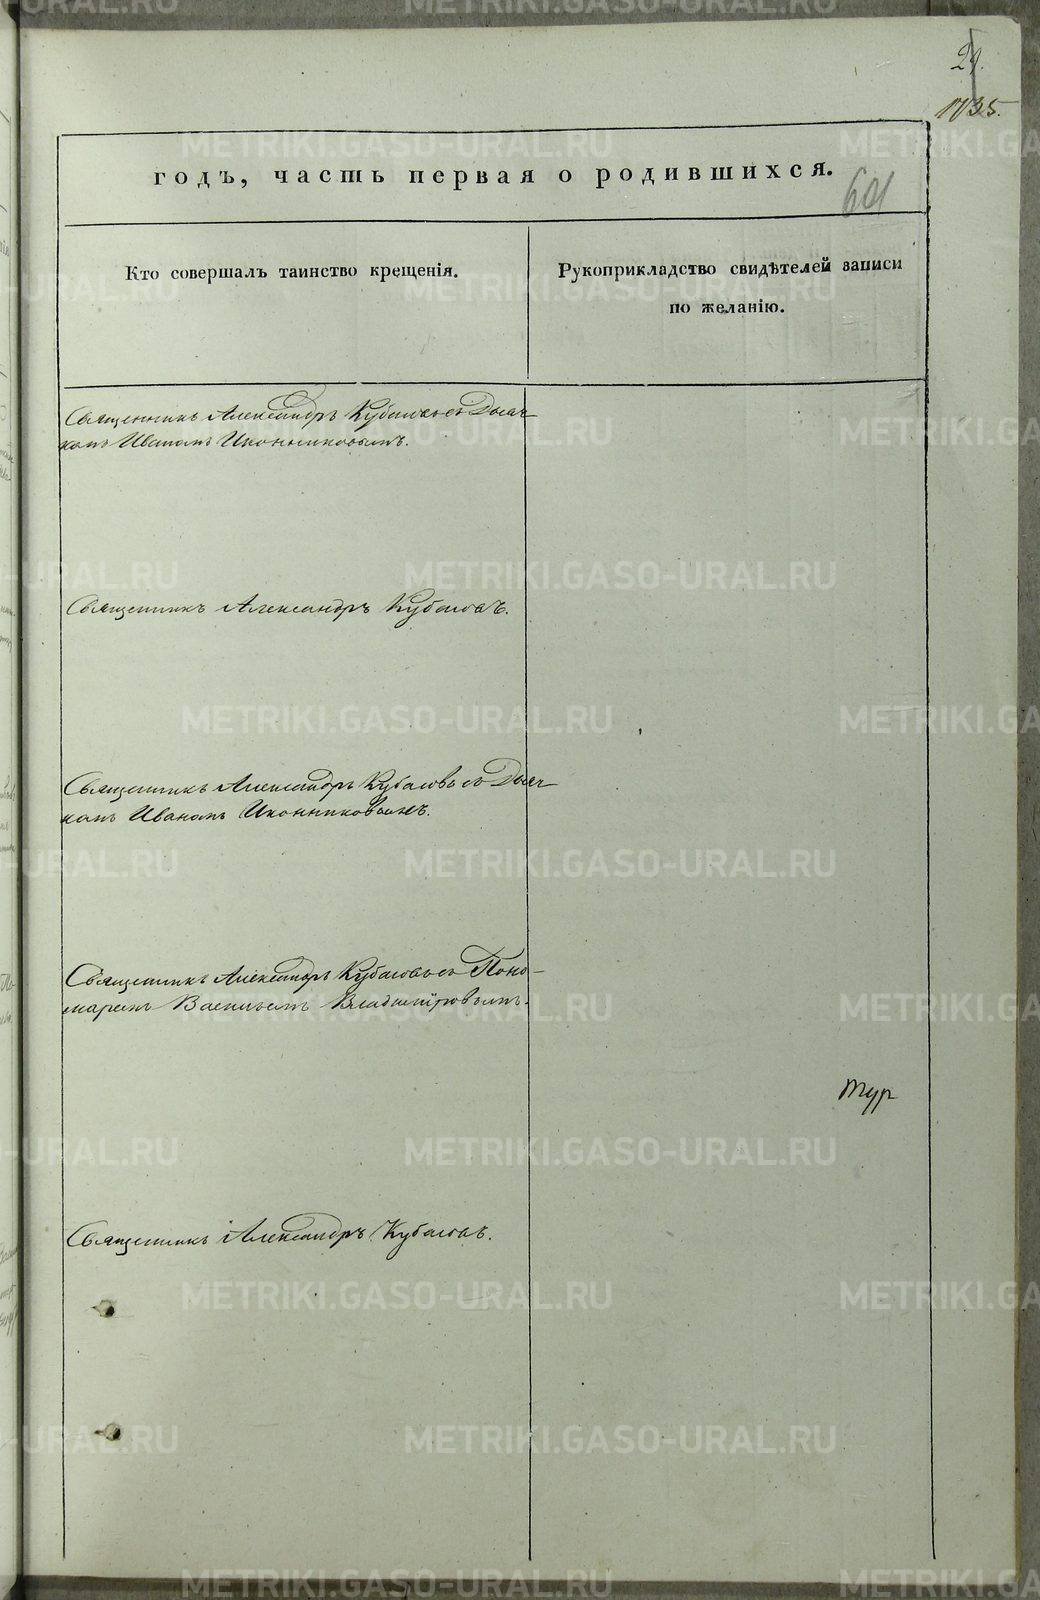 29.
1735.
годъ, часть первая о родившихся.
Кто совершалъ таинство крещенія.
Рукоприкладство свидѣтелей записи
по желанію.
Священникъ Александръ Кубасовъ съ Дьяч
комъ Иваномъ Иконниковымъ.
Священникъ Александръ Кубасовъ.
Священникъ Александръ Кубасовъ съ Дьяч
комъ Иваномъ Иконниковымъ.
Священникъ Александръ Кубасовъ съ Поно-
маремъ Васильемъ Владиміровымъ.
Тур
Священникъ Александръ Кубасовъ.
METRIKI.GASO-URAL.RU